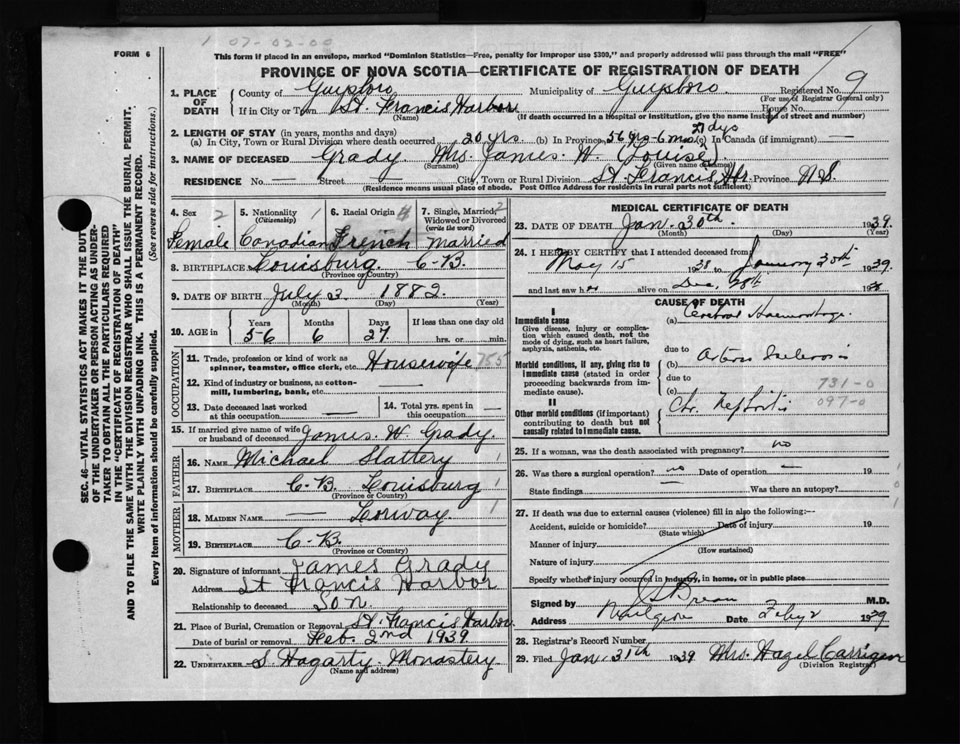 1 07-02-00
FORM 6
This form if placed in an envelope, marked "Dominion Statistics—Free, penalty for improper use $300," and properly addressed will pass through the mail "FREE"
PROVINCE OF NOVA SCOTIA—CERTIFICATE OF REGISTRATION OF DEATH
1. PLACE OF DEATH
County of Guysboro Municipality of Guysboro Registered No. 9
(For use of Registrar General only)
If in City or Town St. Francis Harbor House No.
(Name) (If death occurred in a hospital or institution, give the name instead of street and number)
2. LENGTH OF STAY (in years, months and days)
(a) In City, Town or Rural Division where death occurred 20 yrs. (b) In Province 56 yrs-6 mo. 27 dys (c) In Canada (if immigrant) —
3. NAME OF DECEASED Grady. Mrs. James. W. (Louise)
(Surname) (Given name or names)
RESIDENCE No. — Street City, Town or Rural Division St. Francis Hr. Province N S.
(Residence means usual place of abode. Post Office Address for residents in rural parts not sufficient)
4. Sex 2
Female
5. Nationality 1
(Citizenship)
Canadian
6. Racial Origin 4
French
7. Single, Married, 2
Widowed or Divorced
(write the word)
married
8. BIRTHPLACE Louisburg. C-B.
(Province or Country)
9. DATE OF BIRTH July 3. 1882.
(Month) (Day) (Year)
10. AGE in
Years Months Days If less than one day old
56 6 27. hrs. or min.
OCCUPATION
11. Trade, profession or kind of work as
spinner, teamster, office clerk, etc. Housewife 755
12. Kind of industry or business, as cotton-
mill, lumbering, bank, etc.
13. Date deceased last worked
at this occupation —
14. Total yrs. spent in
this occupation —
15. If married give name of wife
or husband of deceased James. W. Grady.
FATHER
16. NAME Michael Slattery 1
17. BIRTHPLACE C-B. Louisburg 1
(Province or Country)
MOTHER
18. MAIDEN NAME — Conway. 1
19. BIRTHPLACE C-B.
(Province or Country)
20. Signature of informant James Grady
Address St Francis Harbor
Relationship to deceased Son.
21. Place of Burial, Cremation or Removal St. Francis Harbor
Date of burial or removal Feb. 2nd 1939
22. UNDERTAKER S. Hagarty. Monastery
(Name and address)
MEDICAL CERTIFICATE OF DEATH
23. DATE OF DEATH Jan. 30th. 1939.
(Month) (Day) (Year)
24. I HEREBY CERTIFY that I attended deceased from
May 15 1938 to January 30th 1939.
and last saw her alive on Dec. 28th 1938
CAUSE OF DEATH
I
Immediate cause
Give disease, injury or complica-
tion which caused death, not the
mode of dying, such as heart failure,
asphyxia, asthenia, etc.
(a) Cerebral Haemorrhage.
due to
Morbid conditions, if any, giving rise to
immediate cause (stated in order
proceeding backwards from im-
mediate cause).
(b) Arterio Sclerosis
due to
(c)
731-0
097-0
II
Other morbid conditions (if important)
contributing to death but not
causally related to immediate cause.
Chr. Nephritis
25. If a woman, was the death associated with pregnancy? no
26. Was there a surgical operation? no Date of operation — 19
State findings Was there an autopsy?
27. If death was due to external causes (violence) fill in also the following:—
Accident, suicide or homicide? Date of injury 19
(State which)
Manner of injury
(How sustained)
Nature of injury
Specify whether injury occurred in industry, in home, or in public place
Signed by M.D.
Address Date Feby 2 1939
28. Registrar's Record Number
29. Filed Jan. 31th 1939 Mrs. Hazel Carrigan
(Division Registrar)
SEC. 46—VITAL STATISTICS ACT MAKES IT THE DUTY
OF THE UNDERTAKER OR PERSON ACTING AS UNDER-
TAKER TO OBTAIN ALL THE PARTICULARS REQUIRED
IN THE "CERTIFICATE OF REGISTRATION OF DEATH"
AND TO FILE THE SAME WITH THE DIVISION REGISTRAR WHO SHALL ISSUE THE BURIAL PERMIT.
WRITE PLAINLY WITH UNFADING INK. THIS IS A PERMANENT RECORD.
Every item of information should be carefully supplied. (See reverse side for instructions.)